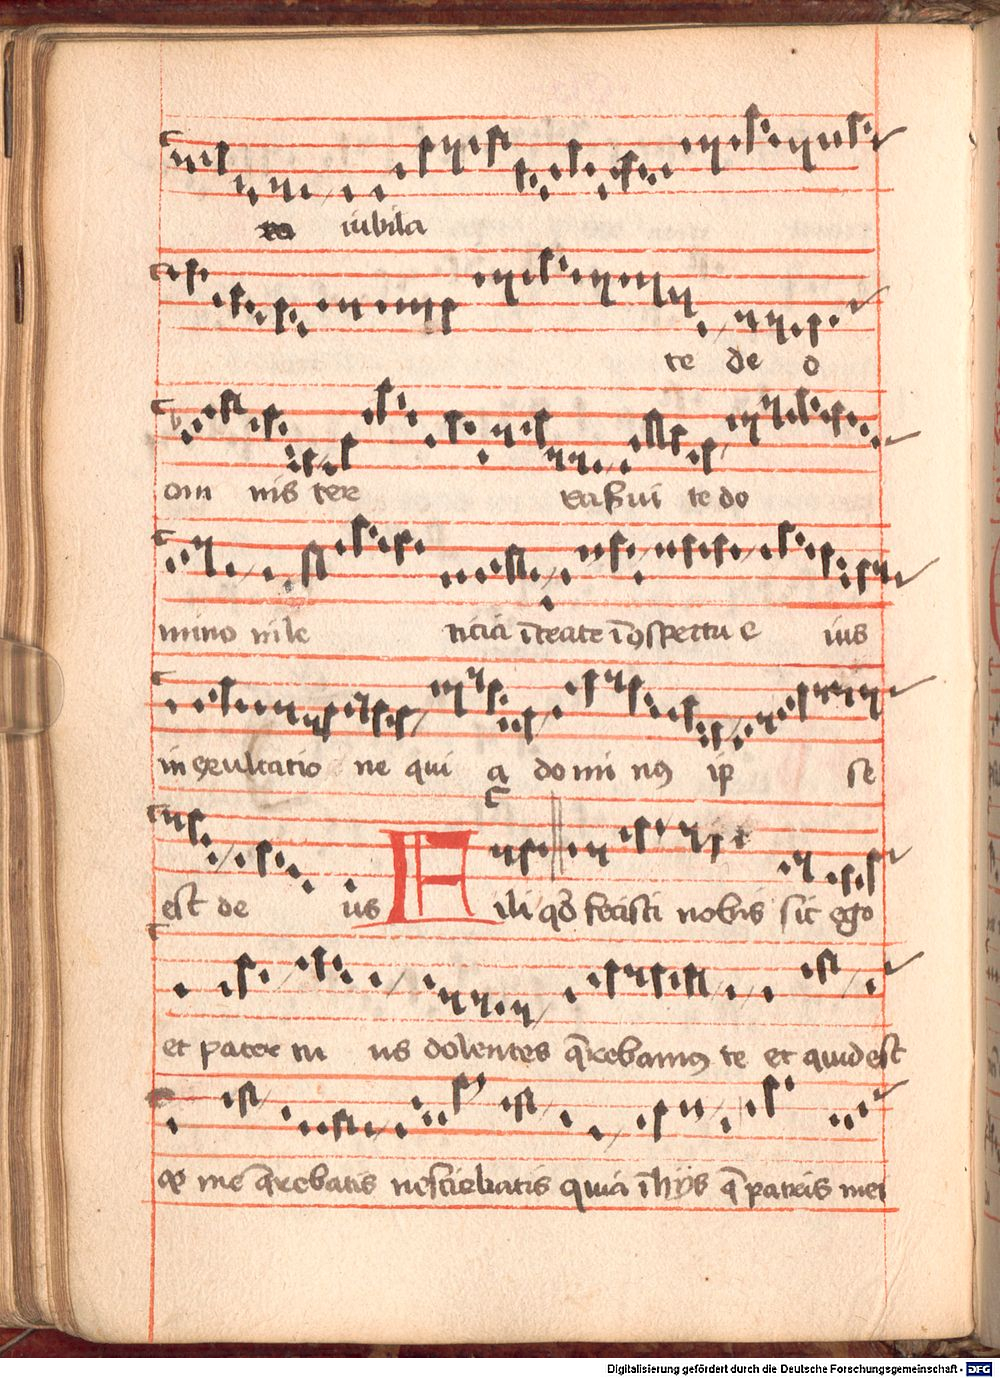 ra iubila
te de o
om nis ter ra ser ui te do
mino in le ticia ītrate īꝯspectu e ius
in exultatio ne qui a do mi nꝯ ip se
est de us Fili qd fecisti nobis sic ego
et pater tu us dolentes q̄rebamꝯ te et quid est
qꝫ me q̄rebatis nesciebatis quia ī hijs q̄ patris mei
Digitalisierung gefördert durch die Deutsche Forschungsgemeinschaft - DFG